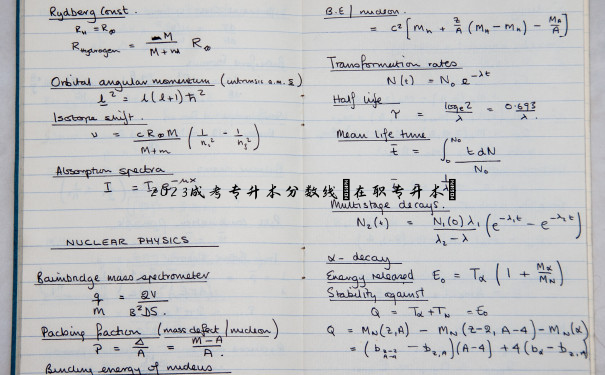 Rydberg Const.
R_H = R_∞
R_Hydrogen = M / (M + m) R_∞
Orbital angular momentum (intrinsic a.m. s)
l² = l(l+1)ħ²
Isotope shift.
ν = cR_∞M / (M+m) (1/n₁² - 1/n₂²)
Absorption spectra
I = I₀ e^(-μx)
2023成考专升本分数线 在职专升本
NUCLEAR PHYSICS
Bainbridge mass spectrometer
q/m = 2V / B²DS.
Packing fraction (mass defect / nucleon)
P = Δ/A = (M-A)/A.
Binding energy of nucleus
B.E / nucleon.
= c² [M_n + Z/A (M_H - M_n) - M_A/A]
Transformation rates
N(t) = N₀ e^(-λt)
Half life
τ = log_e 2 / λ = 0.693 / λ.
Mean life time
t̄ = ∫₀^(N₀) t dN / N₀
Multistage decays.
N₂(t) = N₁(0)λ₁ / (λ₂ - λ) (e^(-λ₁t) - e^(-λ₂t))
α - decay
Energy released E₀ = T_α (1 + M_α/M_N)
Stability against
Q = T_α + T_N = E₀
Q = M_N(Z,A) - M_N(Z-2, A-4) - M_N(α)